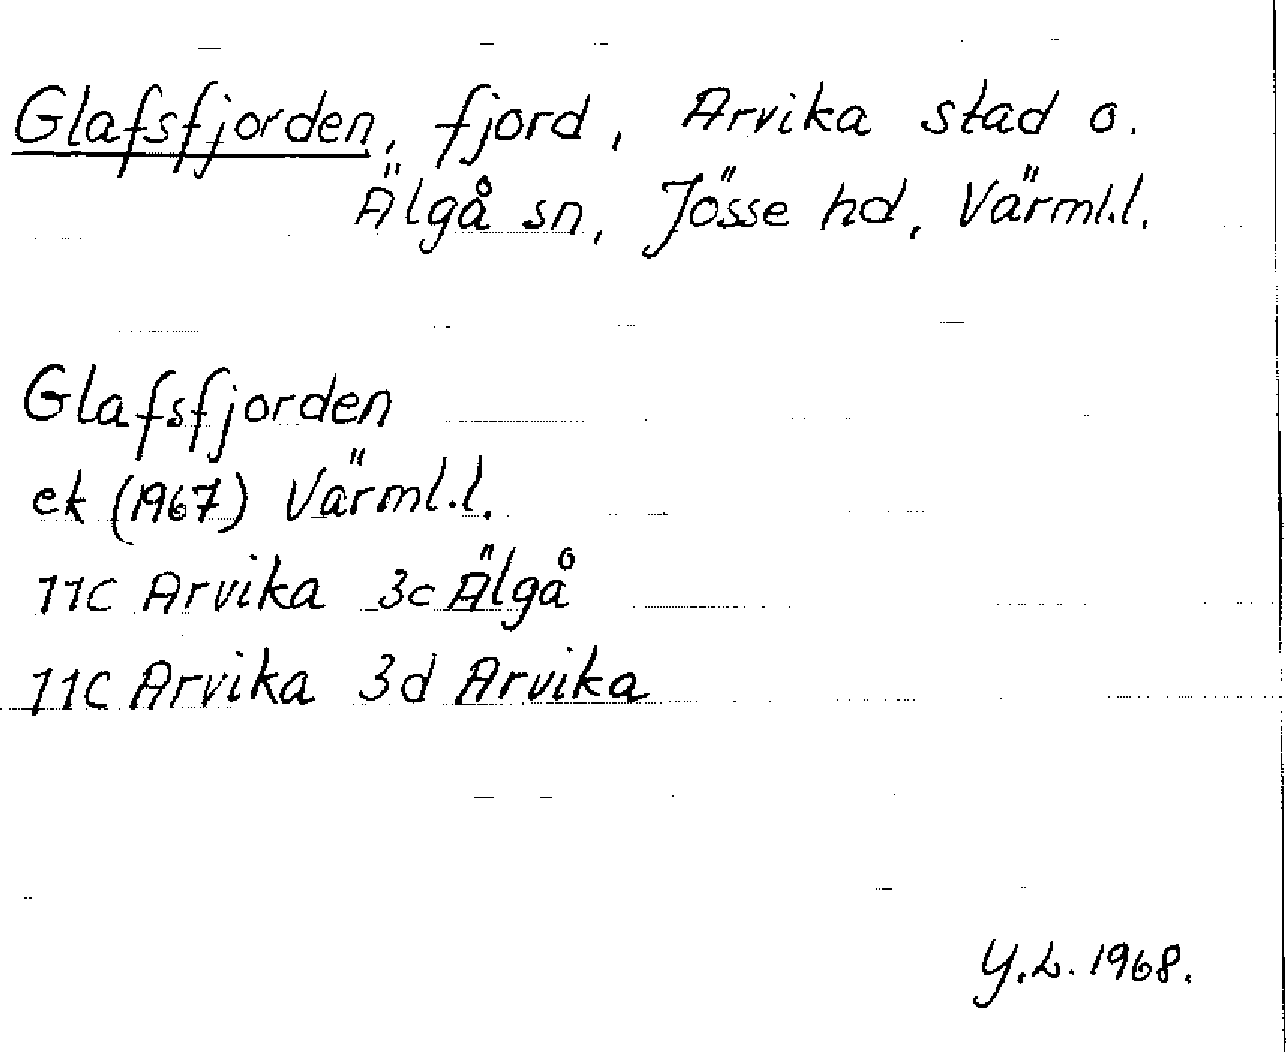 Glafsfjorden, fjord, Arvika stad o.
Älgå sn, Jösse hd, Värml.l.
Glafsfjorden
ek (1967) Värml.l.
11C Arvika 3c Älgå
11C Arvika 3d Arvika
Y.L. 1968.